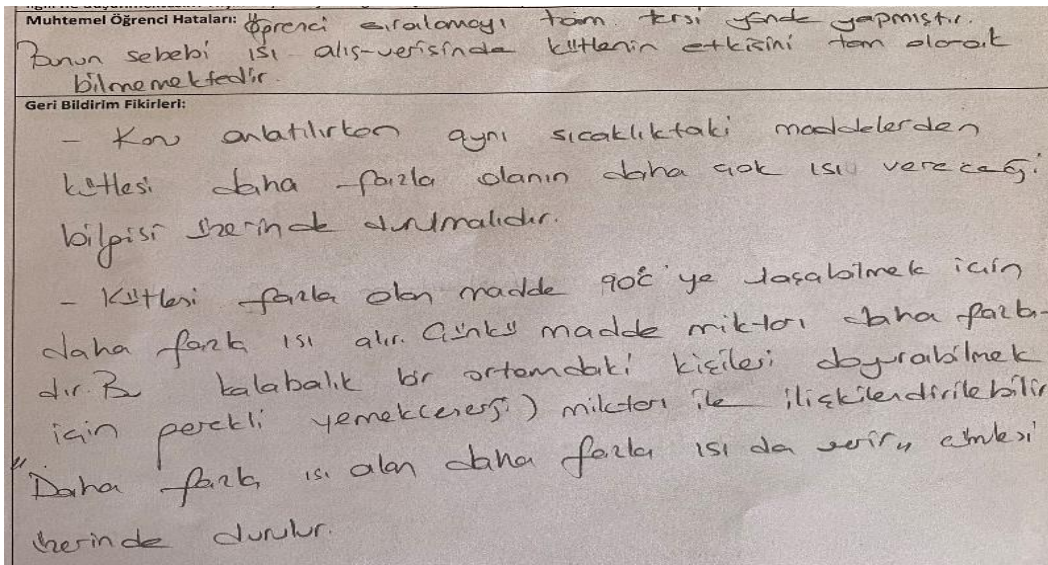 Muhtemel Öğrenci Hataları: Öğrenci sıralamayı tam tersi yönde yapmıştır.
Bunun sebebi ısı alış-verişinde kütlenin etkisini tam olarak
bilmemektedir.
Geri Bildirim Fikirleri:
- Konu anlatılırken aynı sıcaklıktaki maddelerden
kütlesi daha fazla olanın daha çok ısı vereceği
bilgisi üzerinde durulmalıdır.
- Kütlesi fazla olan madde 90°C'ye ulaşabilmek için
daha fazla ısı alır. Çünkü madde miktarı daha fazla-
dır. Bu kalabalık bir ortamdaki kişileri doyurabilmek
için gerekli yemek(enerji) miktarı ile ilişkilendirilebilir
"Daha fazla ısı alan daha fazla ısı da verir" cümlesi
üzerinde durulur.